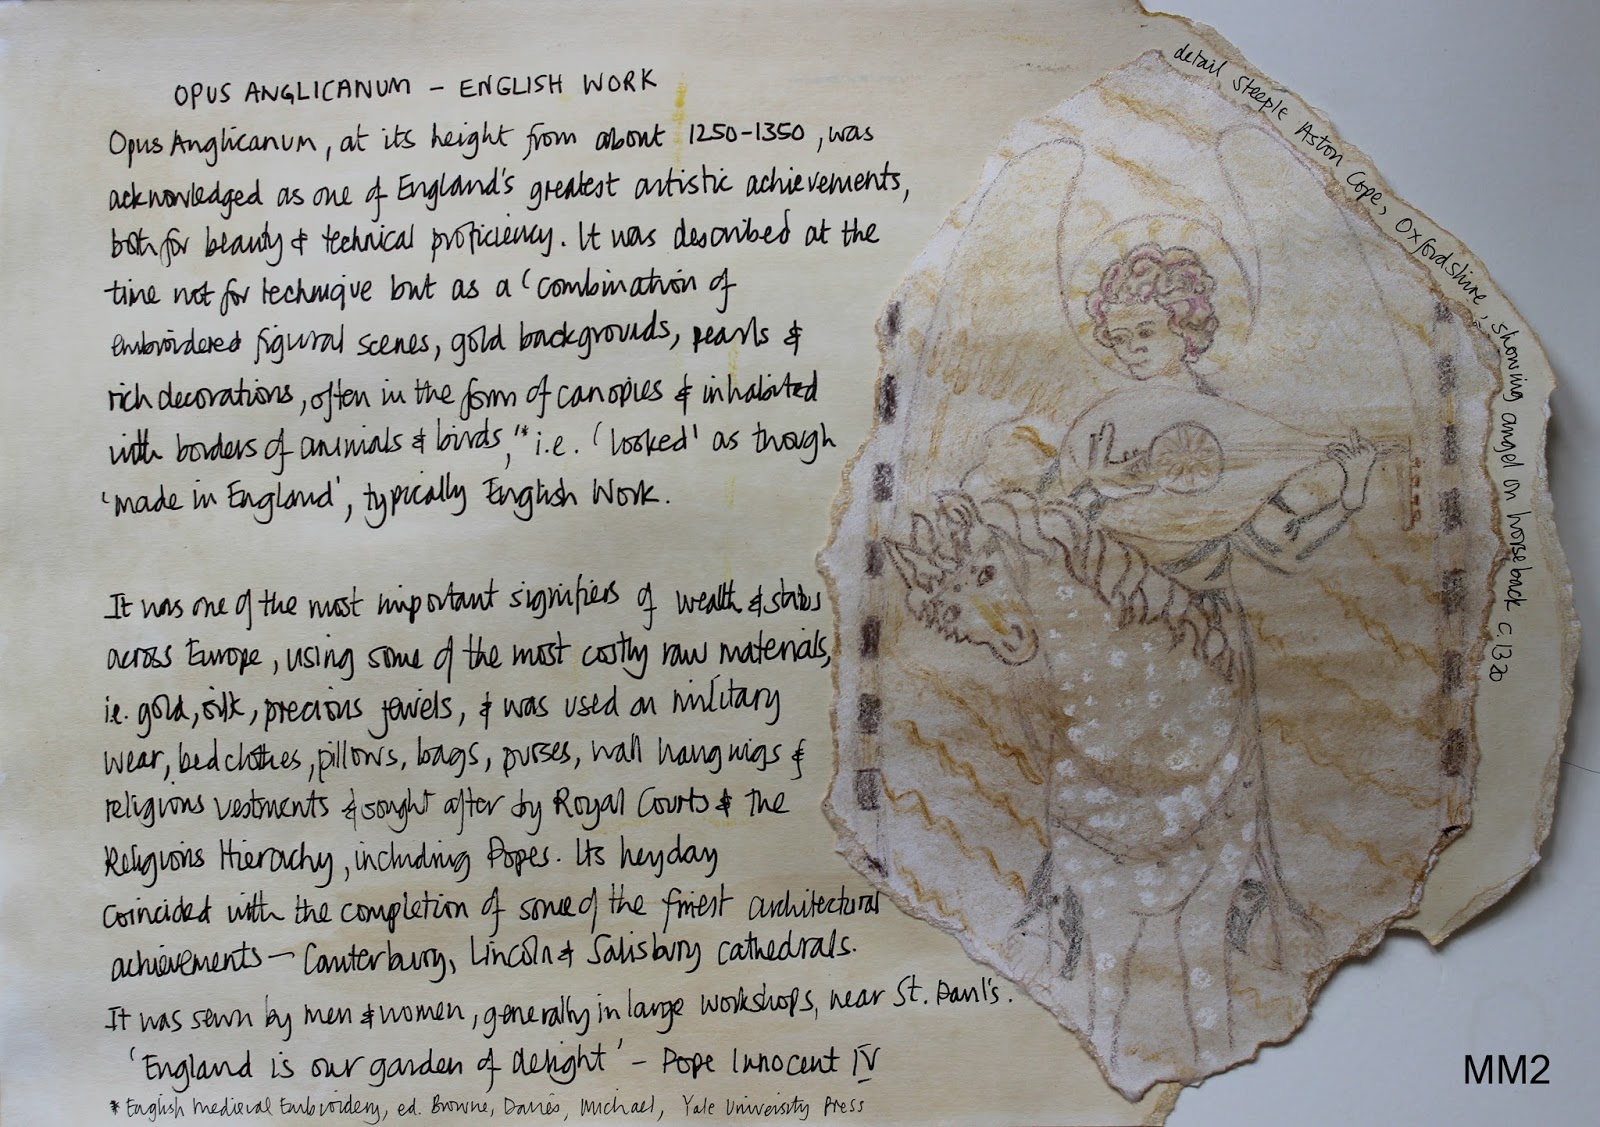 OPUS ANGLICANUM – ENGLISH WORK
Opus Anglicanum, at its height from about 1250-1350, was
acknowledged as one of England's greatest artistic achievements,
both for beauty & technical proficiency. It was described at the
time not for technique but as a 'combination of
embroidered figural scenes, gold backgrounds, pearls &
rich decorations, often in the form of canopies & inhabited
with borders of animals & birds,'* i.e. 'looked' as though
'made in England', typically English Work.
It was one of the most important signifiers of wealth & status
across Europe, using some of the most costly raw materials,
i.e. gold, silk, precious jewels, & was used on military
wear, bedclothes, pillows, bags, purses, wall hangings &
religious vestments & sought after by Royal Courts & the
Religious Hierachy, including Popes. Its heyday
coincided with the completion of some of the finest architectural
achievements – Canterbury, Lincoln & Salisbury cathedrals.
It was sewn by men & women, generally in large workshops, near St. Paul's.
'England is our garden of delight' – Pope Innocent IV
* English Medieval Embroidery, ed. Browne, Davies, Michael, Yale University Press
detail Steeple Aston Cope, Oxfordshire, showing angel on horseback c.1320
MM2